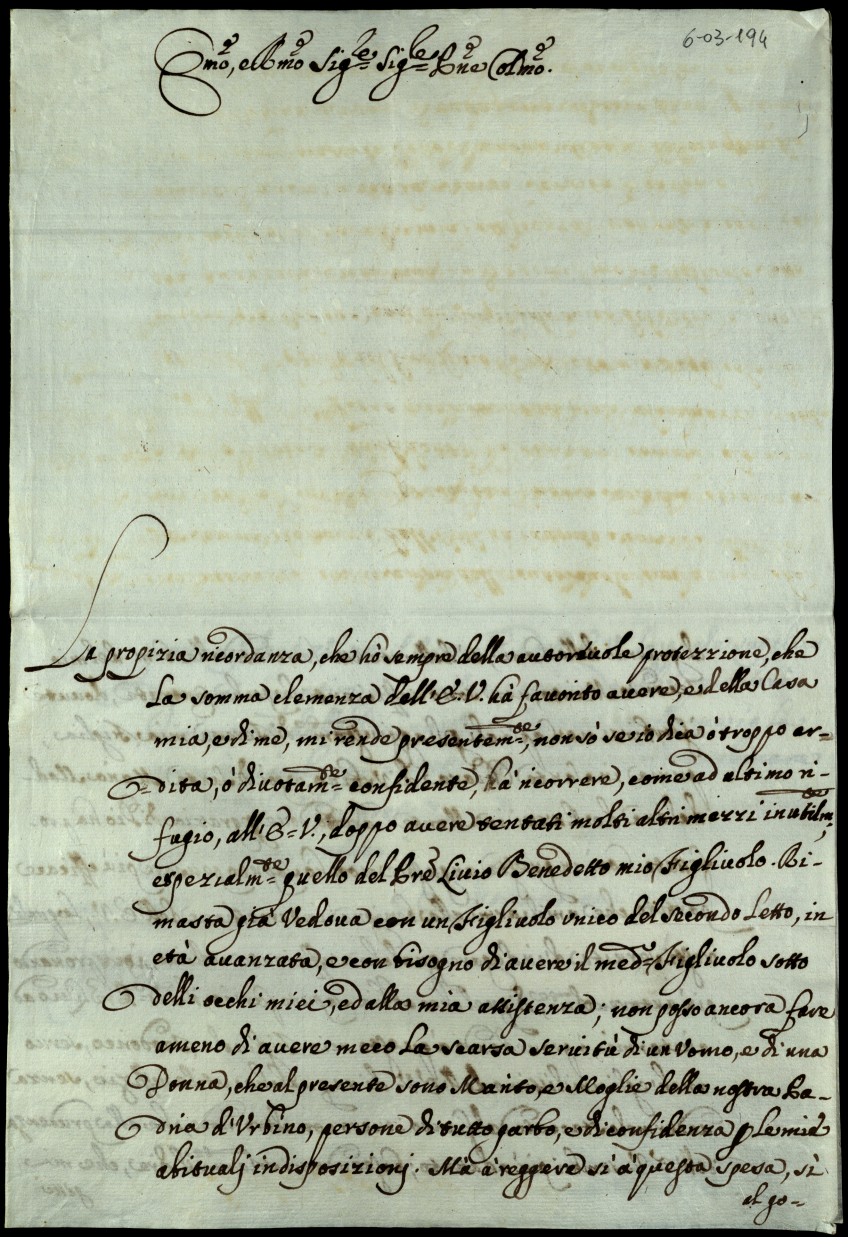 6-03-194
Emo, e Rmo Sigre Sigre Pne Colmo.
La propizia ricordanza, che hò sempre della autorevole protezzione, che
La somma clemenza dell'E. V. hà favorito avere, e della Casa
mia, e di me, mi rende presentemte, non sò se io dica ò troppo ar-
dita, ò divotamte confidente, hà ricorrere, come ad ultimo ri-
fugio, all'E. V., doppo avere tentati molti altri mezzi inutilmte,
e spezialmte quello del Pre Livio Benedetto mio Figlivolo. Ri-
masta già Vedova con un Figlivolo unico del secondo Letto, in
età avanzata, e con bisogno di avere il med. Figlivolo sotto
delli occhi miei, ed alla mia assistenza; non posso ancora fare
ameno di avere meco La scarsa servitù di un Vomo, e di una
Donna, che al presente sono Marito, e Moglie della nostra Pa-
dria d'Vrbino, persone di tutto garbo, e di confidenza p Le mie
abitualj indisposizionj. Mà à reggere sì à questa spesa, sì
al go-